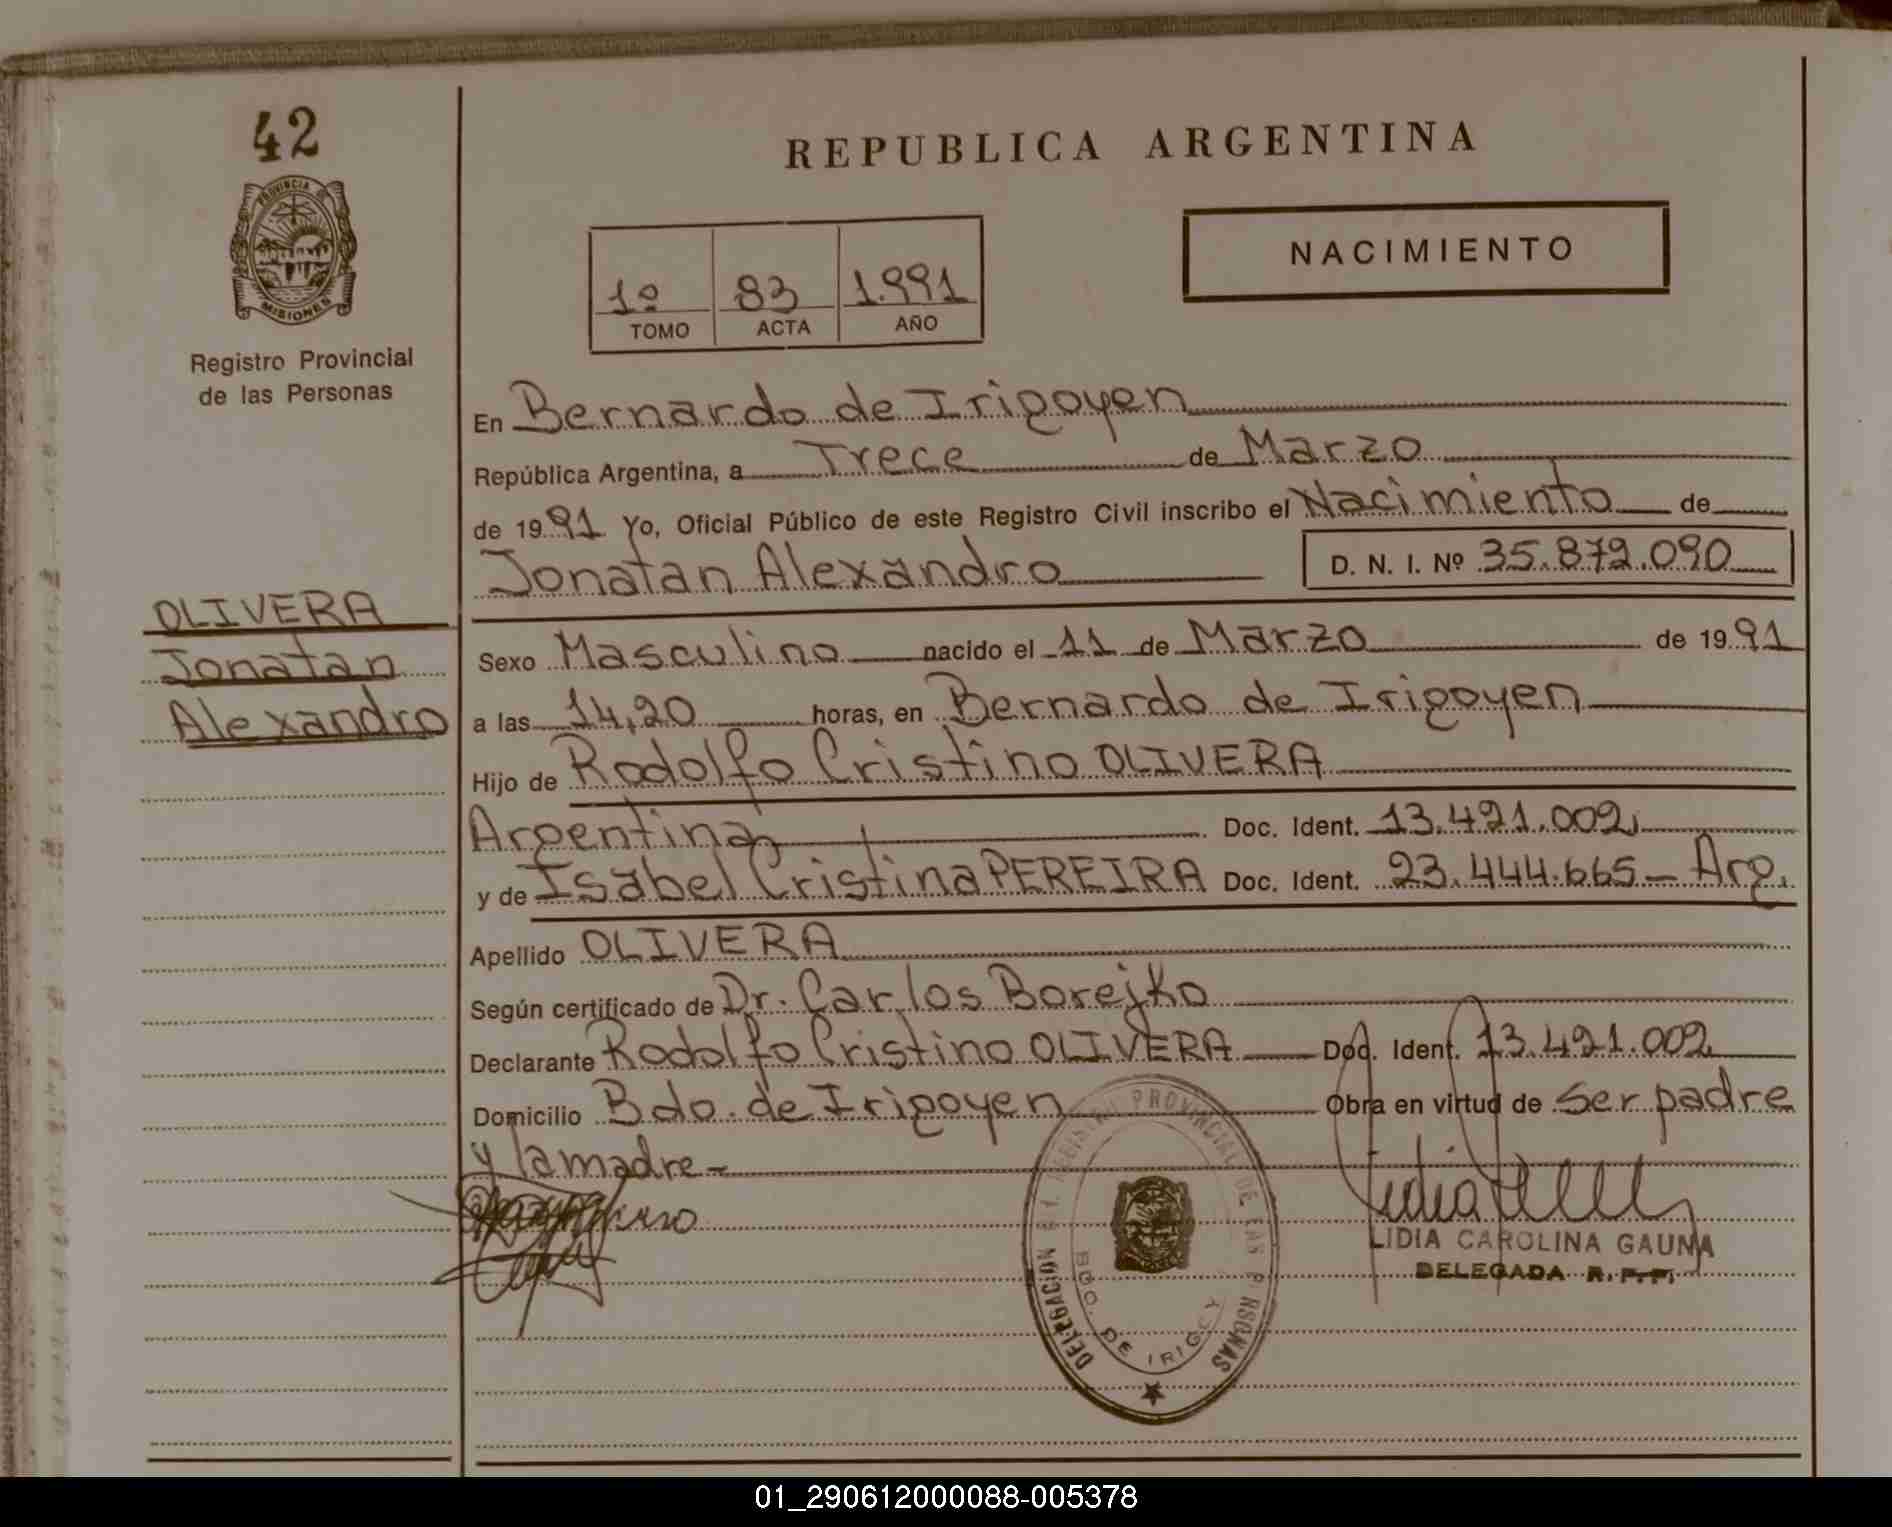 42
REPUBLICA ARGENTINA
PROVINCIA DE
MISIONES
Registro Provincial
de las Personas
1º 83 1.991
TOMO ACTA AÑO
NACIMIENTO
En Bernardo de Irigoyen
República Argentina, a Trece de Marzo
de 1991 Yo, Oficial Público de este Registro Civil inscribo el Nacimiento de
Jonatan Alexandro D. N. I. Nº 35.872.090
OLIVERA
Jonatan
Alexandro
Sexo Masculino nacido el 11 de Marzo de 1991
a las 14,20 horas, en Bernardo de Irigoyen
Hijo de Rodolfo Cristino OLIVERA
Argentina Doc. Ident. 13.421.002
y de Isabel Cristina PEREIRA Doc. Ident. 23.444.665 - Arg.
Apellido OLIVERA
Según certificado de Dr. Carlos Borejko
Declarante Rodolfo Cristino OLIVERA Doc. Ident. 13.421.002
Domicilio Bdo. de Irigoyen Obra en virtud de ser padre
y la madre -
REGISTRO PROVINCIAL DE LAS PERSONAS
DELEGACION
BDO. DE IRIGOY
LIDIA CAROLINA GAUNA
DELEGADA R. P. P.
01_290612000088-005378